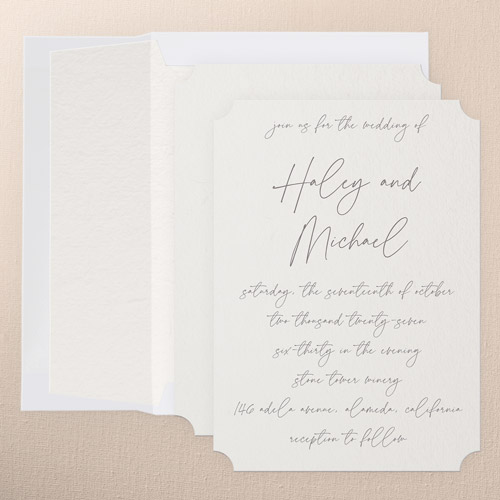 join us for the wedding of
Haley and
Michael
saturday, the seventeenth of october
two thousand twenty-seven
six-thirty in the evening
stone tower winery
146 adela avenue, alameda, california
reception to follow